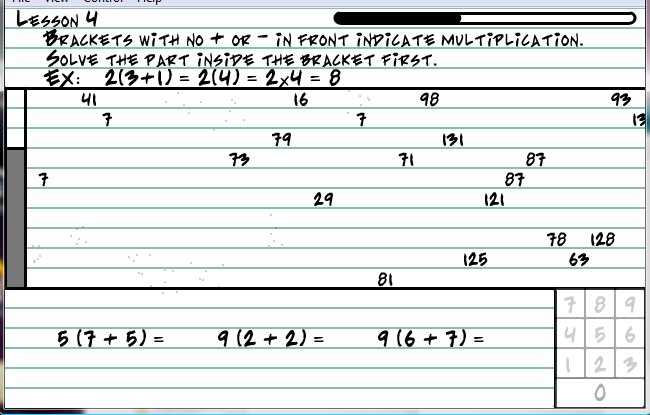 File View Control Help
LESSON 4
BRACKETS WITH NO + OR - IN FRONT INDICATE MULTIPLICATION.
SOLVE THE PART INSIDE THE BRACKET FIRST.
EX: 2(3+1) = 2(4) = 2x4 = 8
41 16 98 93
7 7 13
79 131
73 71 87
7 87
29 121
78 128
125 63
81
7 8 9
5 (7 + 5) = 9 (2 + 2) = 9 (6 + 7) = 4 5 6
1 2 3
0